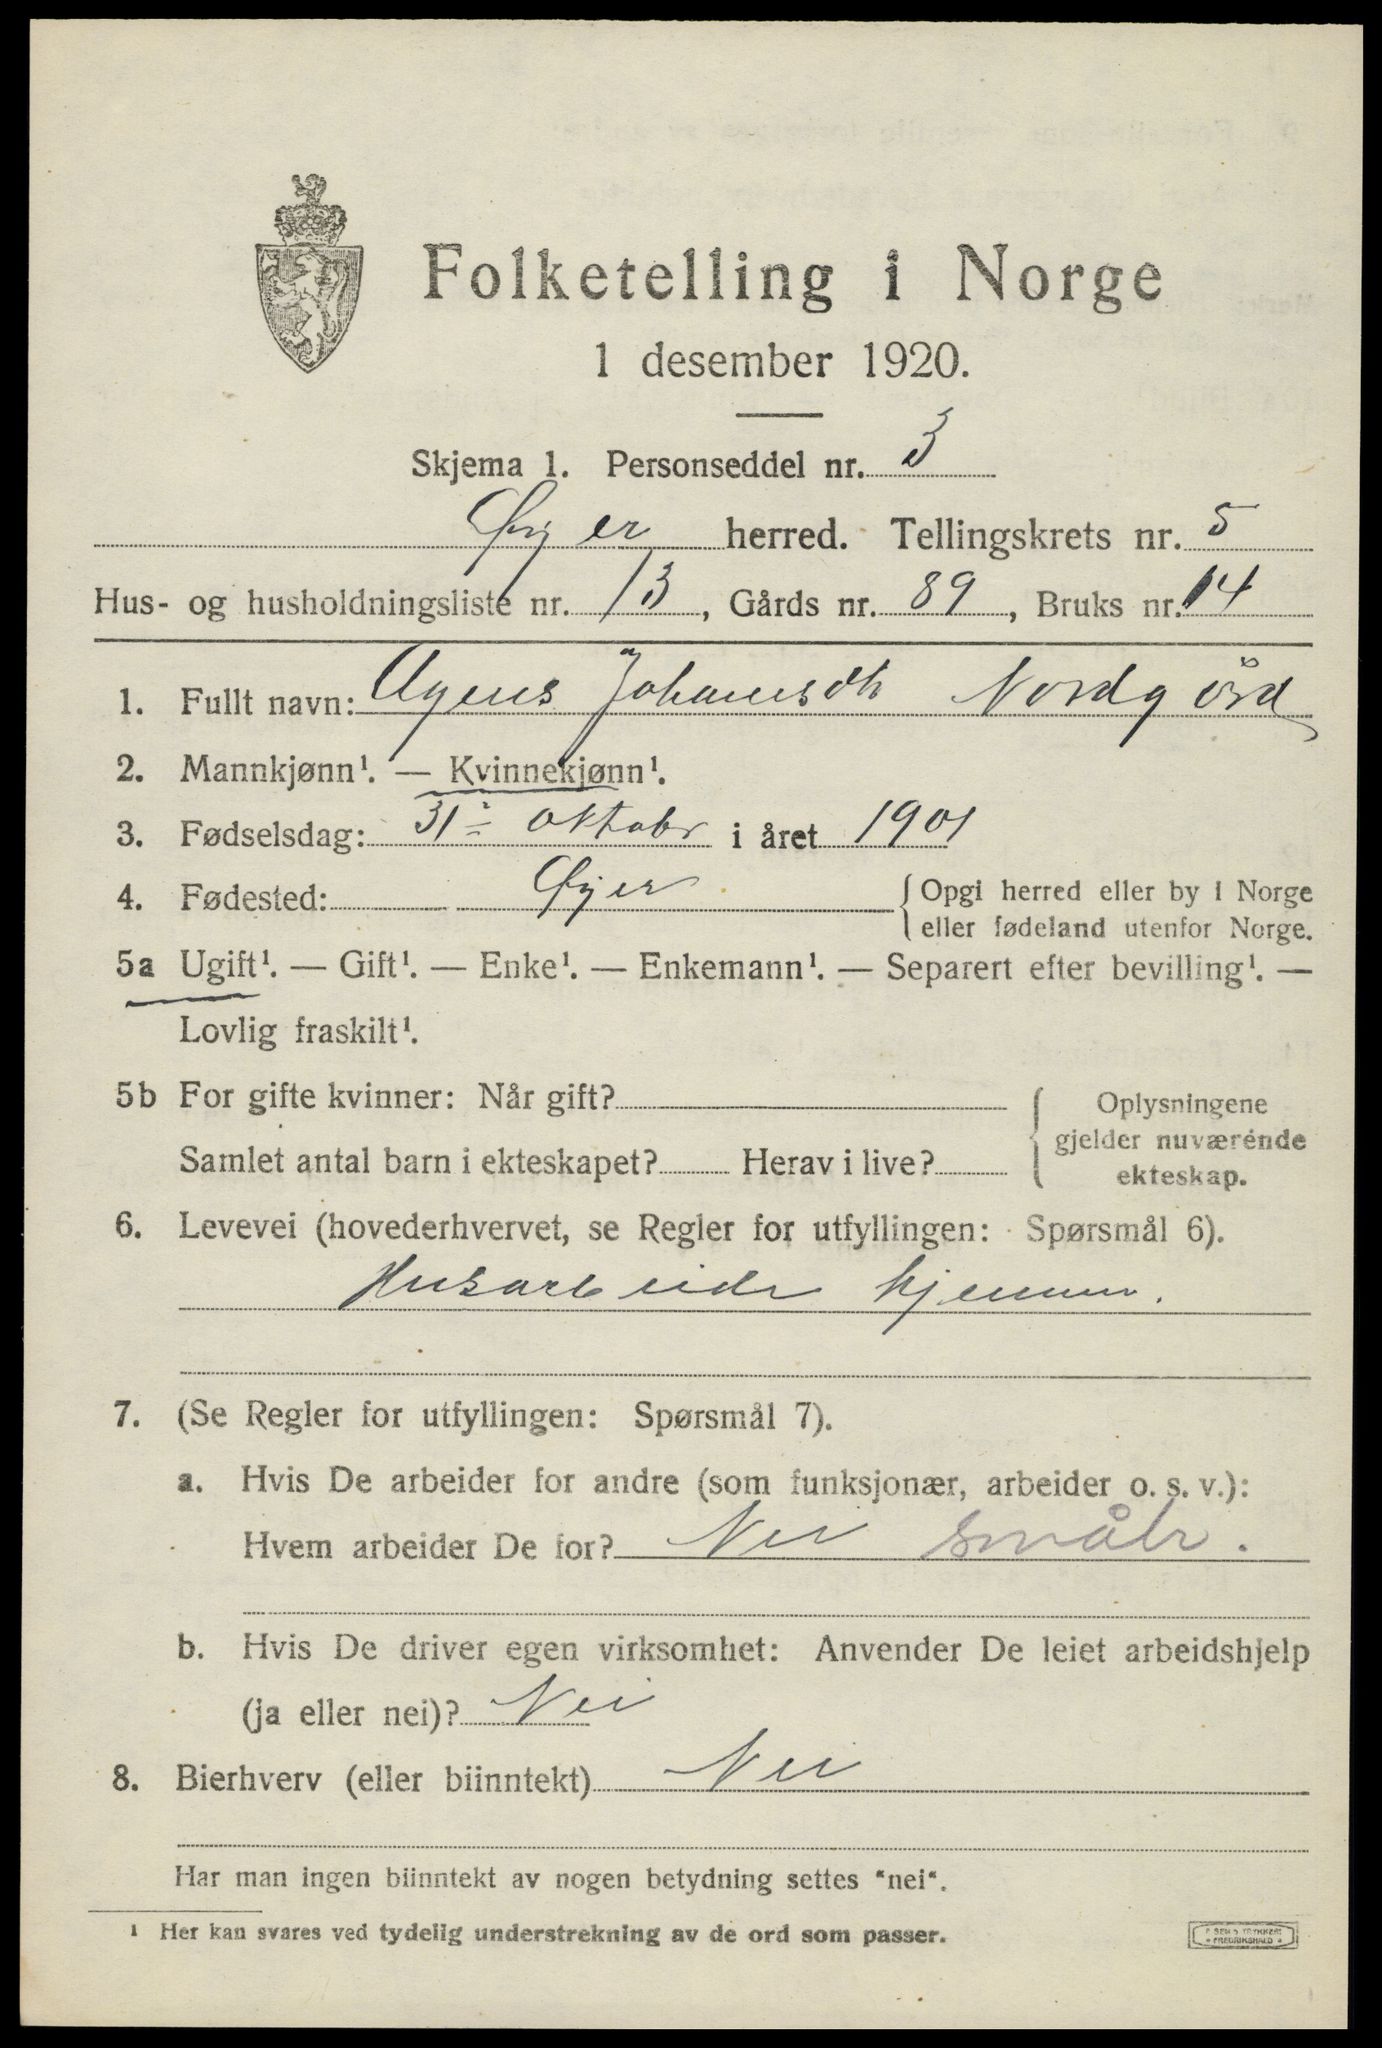 Folketelling i Norge
1 desember 1920.
Skjema 1. Personseddel nr. 3
Øyer herred. Tellingskrets nr. 5
Hus- og husholdningsliste nr. 13, Gårds nr. 89, Bruks nr. 14
1. Fullt navn: Agens Johansdtr Nordgård
2. Mannkjønn¹. — Kvinnekjønn¹.
3. Fødselsdag: 31 oktobr i året 1901
4. Fødested: Øyer {Opgi herred eller by i Norge
eller fødeland utenfor Norge.
5a Ugift¹. — Gift¹. — Enke¹. — Enkemann¹. — Separert efter bevilling¹. —
Lovlig fraskilt¹.
5b For gifte kvinner: Når gift?
Samlet antal barn i ekteskapet? Herav i live?
Oplysningene
gjelder nuværende
ekteskap.
6. Levevei (hovederhvervet, se Regler for utfyllingen: Spørsmål 6).
Husarbeide hjemme.
7. (Se Regler for utfyllingen: Spørsmål 7).
a. Hvis De arbeider for andre (som funksjonær, arbeider o. s. v.):
Hvem arbeider De for? Nei småbr.
b. Hvis De driver egen virksomhet: Anvender De leiet arbeidshjelp
(ja eller nei)? Nei
8. Bierhverv (eller biinntekt) Nei
Har man ingen biinntekt av nogen betydning settes "nei".
¹ Her kan svares ved tydelig understrekning av de ord som passer.